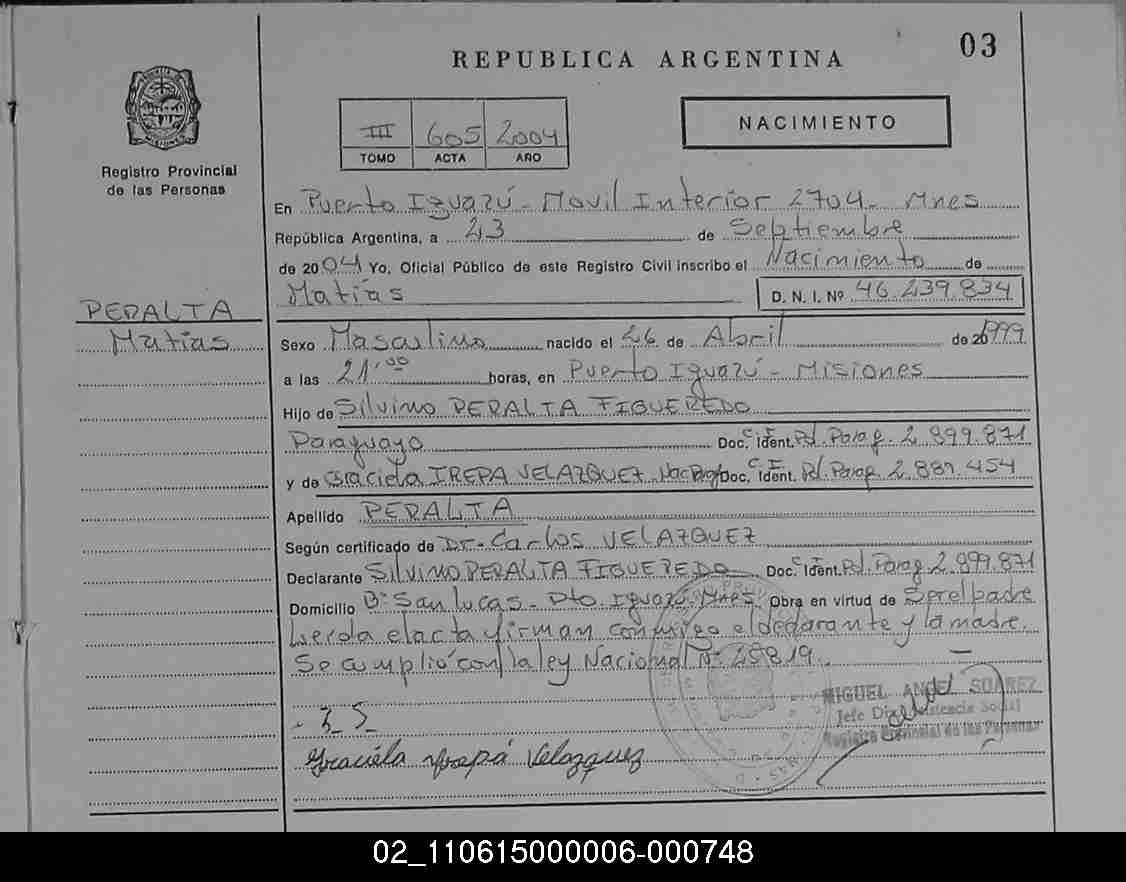 03
REPUBLICA ARGENTINA
III 605 2004
TOMO ACTA AÑO
NACIMIENTO
Registro Provincial
de las Personas
En Puerto Iguazú - Movil Interior 2704 - Mnes
República Argentina, a 23 de Septiembre
de 2004 Yo, Oficial Público de este Registro Civil inscribo el Nacimiento de
Matías D. N. I. Nº 46.239.834
PERALTA
Matias
Sexo Masculino nacido el 26 de Abril de 1999
a las 21'00 horas, en Puerto Iguazú - Misiones
Hijo de Silvino PERALTA FIGUEREDO
Paraguayo Doc. Ident. C.I. Pol. Parag. 2.899.871
y de Graciela IREPA VELAZQUEZ Doc. Ident. C.I. Pol. Parag. 2.889.454
Apellido PERALTA
Según certificado de Dr. Carlos VELAZQUEZ
Declarante Silvino PERALTA FIGUEREDO Doc. Ident. C.I. Pol. Parag 2.899.871
Domicilio Bº San Lucas - Dto. Iguazú. Mnes. Obra en virtud de Ser el padre
Leida el acta firman conmigo el declarante y la madre.
Se cumplió con la ley Nacional Nº 25819.
MIGUEL ANGEL SUAREZ
Jefe Div. Asistencia Social
Registro Provincial de las Personas
Graciela Yrepá Velazquez
02_110615000006-000748